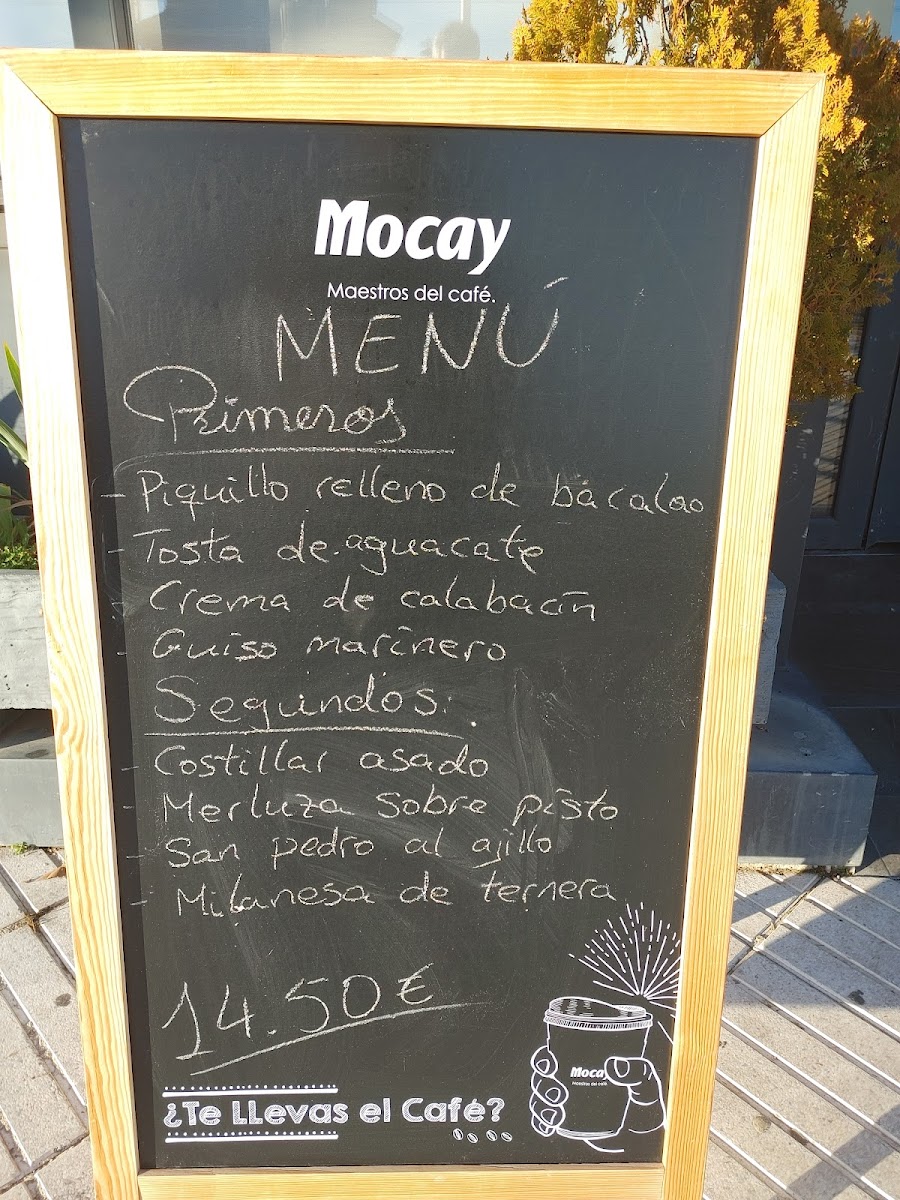 Mocay
Maestros del café.
MENÚ
Primeros
- Piquillo relleno de bacalao
- Tosta de aguacate
- Crema de calabacín
- Guiso marinero
Segundos:
- Costillar asado
- Merluza sobre pisto
- San pedro al ajillo
- Milanesa de ternera
14.50€
Mocay
Maestros del café
¿Te LLevas el Café?